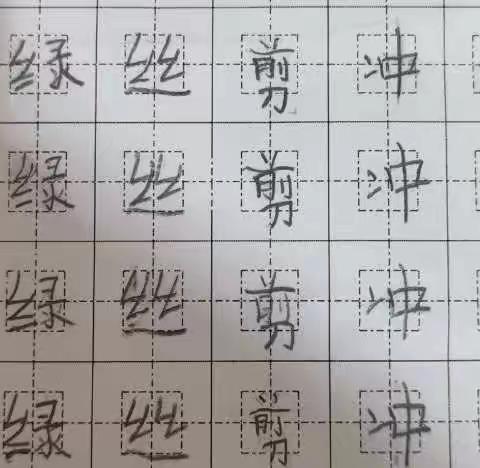 绿 丝 剪 冲
绿 丝 剪 冲
绿 丝 剪 冲
绿 丝 剪 冲